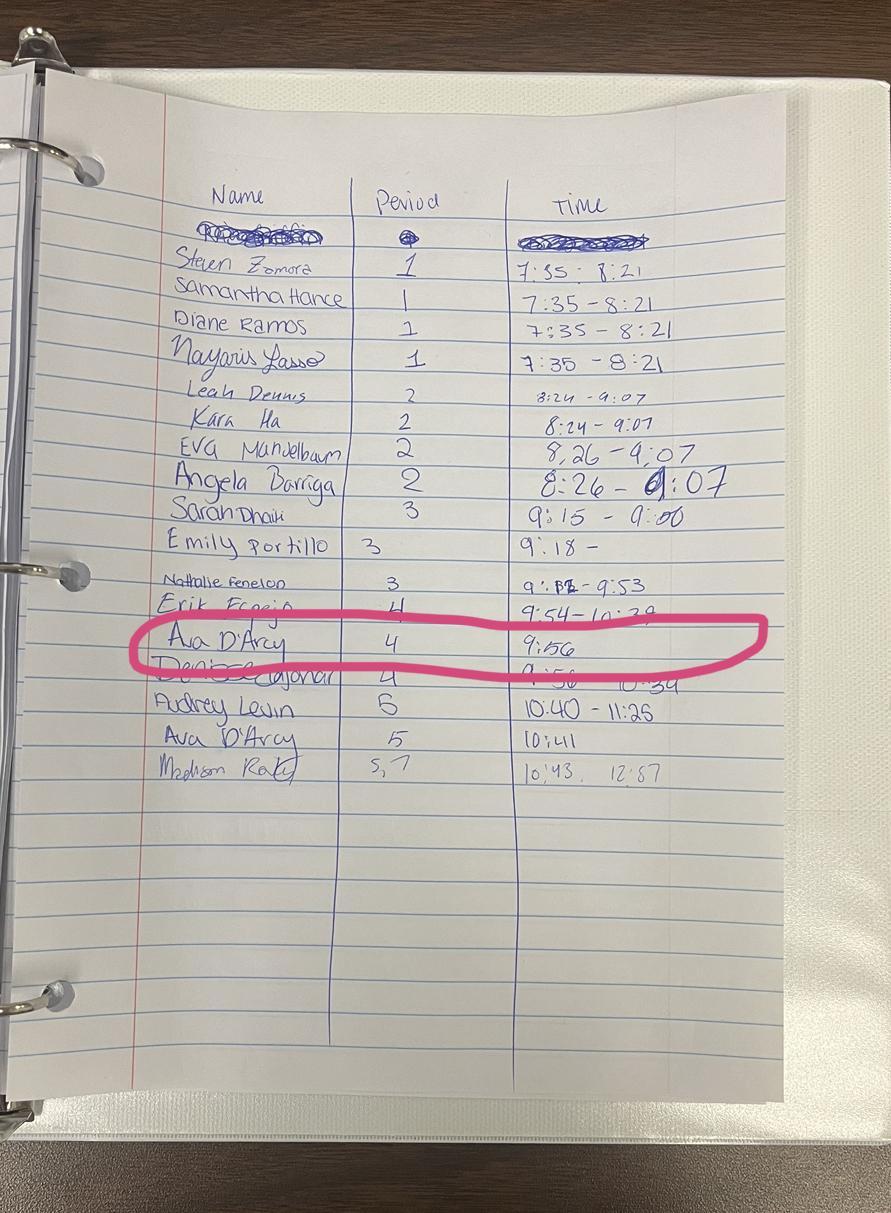 Name Period Time
Steven Zamora 1 7:35 - 8:21
Samantha Hance 1 7:35 - 8:21
Diane Ramos 1 7:35 - 8:21
Nayaris Lasso 1 7:35 - 8:21
Leah Dennis 2 8:24 - 9:07
Kara Ha 2 8:24 - 9:07
Eva Mandelbaum 2 8,26 - 9:07
Angela Barriga 2 8:26 - 9:07
Sarah 3 9:15 - 9:00
Emily Portillo 3 9:18 -
Nathalie Fenelon 3 - 9:53
Erik 4 9:54 - 10:39
Ava D'Arcy 4 9:56
Denisse 4 9:56 10:39
Audrey Levin 5 10:40 - 11:25
Ava D'Arcy 5 10:41
Madison 5,7 10:43. 12:57